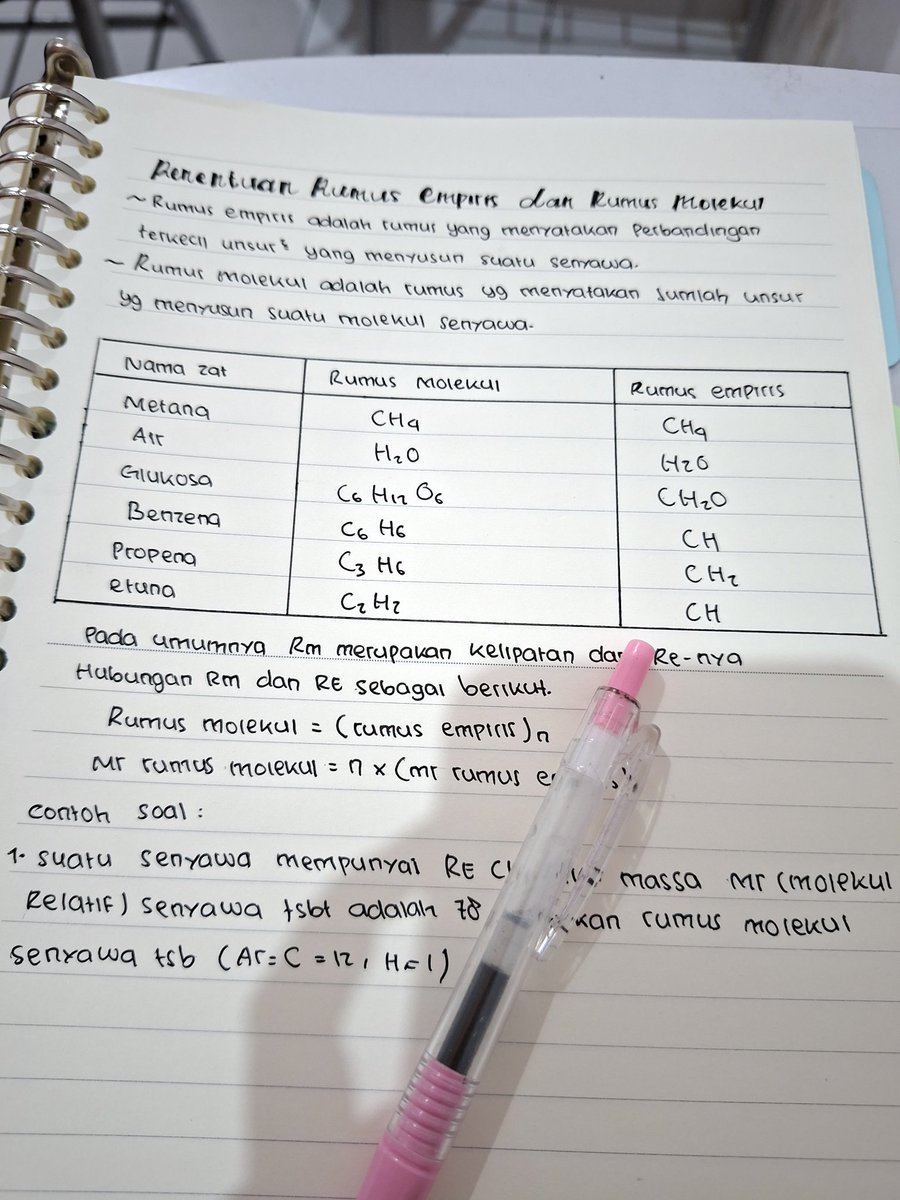 Penentuan Rumus empiris dan Rumus Molekul
~ Rumus empiris adalah rumus yang menyatakan Perbandingan
terkecil unsur² yang menyusun suatu senyawa.
~ Rumus molekul adalah rumus yg menyatakan Jumlah unsur
yg menyusun suatu molekul senyawa.
Nama zat Rumus Molekul Rumus empiris
Metana CH4 CH4
Air H2O H2O
Glukosa C6 H12 O6 CH2O
Benzena C6 H6 CH
Propena C3 H6 CH2
etuna C2 H2 CH
Pada umumnya Rm merupakan kelipatan dari Re-nya
Hubungan Rm dan RE sebagai berikut.
Rumus molekul = (rumus empiris)n
Mr rumus molekul = n x (mr rumus
Contoh soal :
1. suatu senyawa mempunyai RE massa Mr (molekul
Relatif) senyawa tsbt adalah 78 rumus molekul
senyawa tsb (Ar = C = 12, H = 1)